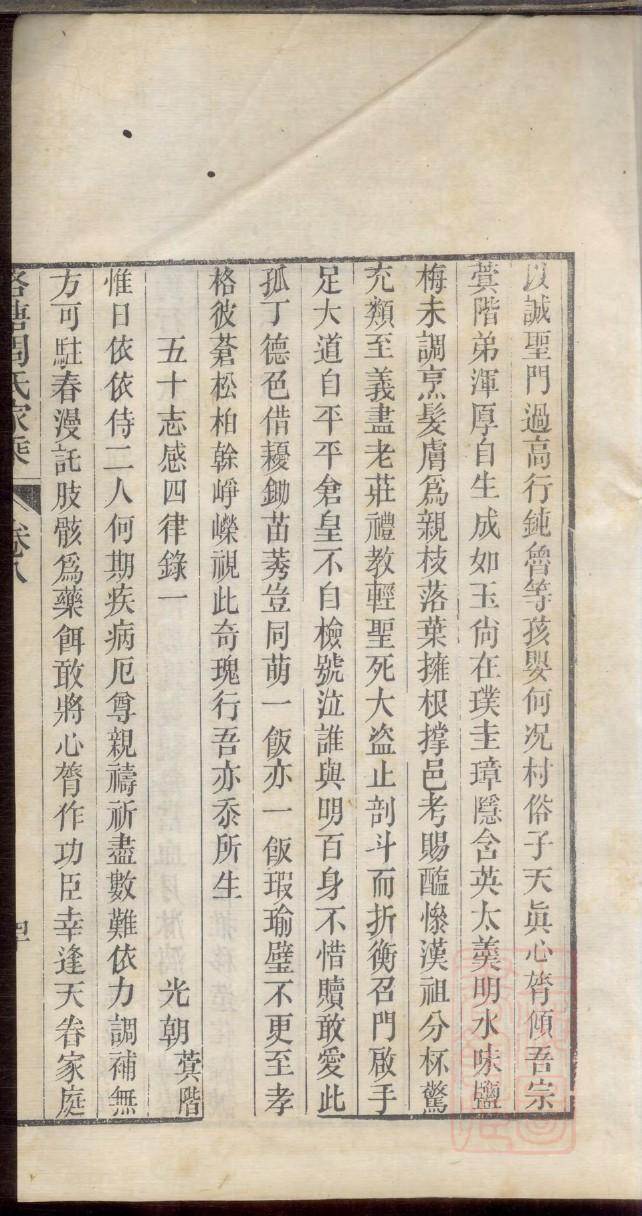 以誠聖門過高行鈍魯等孩嬰何况村俗子天眞心膂傾吾宗
蓂階弟渾厚自生成如玉尙在璞圭璋隱含英太羹明水味鹽
梅未調烹髮膚爲親枝落葉擁根撐邑考賜醢慘漢祖分杯驚
充類至義盡老莊禮教輕聖死大盗止剖斗而折衡召門啟手
足大道自平平倉皇不自檢號泣誰與明百身不惜贖敢愛此
孤丁德色借耰鋤苗莠豈同萌一飯亦一飯瑕瑜璧不更至孝
格彼蒼松柏榦崢嶸視此奇瑰行吾亦忝所生
五十志感四律錄一
光朝蓂階
惟日依依侍二人何期疾病厄尊親禱祈盡數難依力調補無
方可駐春漫託肢骸爲藥餌敢將心膂作功臣幸逢天眷家庭
周氏家乘
卷八